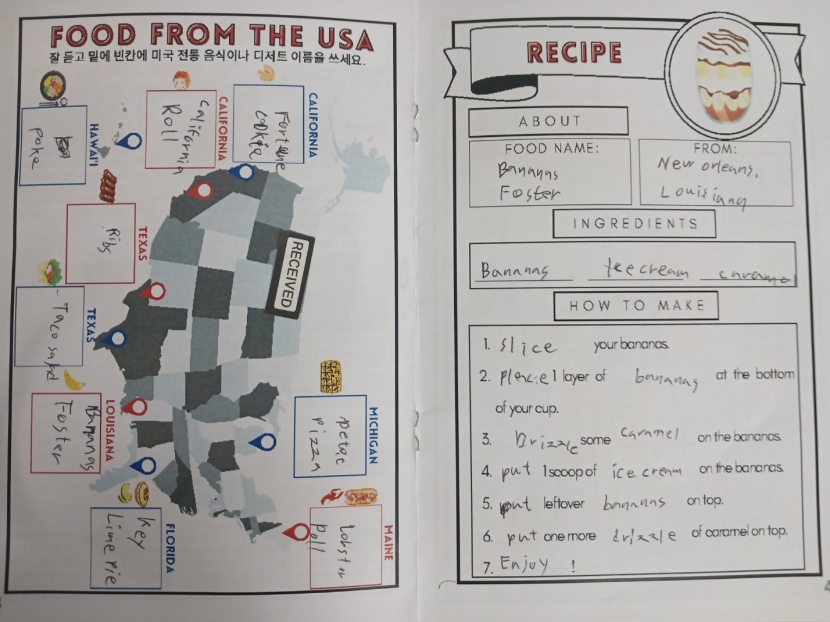 FOOD FROM THE USA
잘 듣고 밑에 빈칸에 미국 전통 음식이나 디저트 이름을 쓰세요.
HAWAI'I
Poke
CALIFORNIA
California
Roll
CALIFORNIA
Fortune
cookie
TEXAS
Ribs
RECEIVED
TEXAS
Taco salad
LOUISIANA
Bananas
Foster
MICHIGAN
petac
pizza
FLORIDA
Key
Lime Pie
MAINE
lobster
Roll
RECIPE
ABOUT
FOOD NAME:
Bananas
Foster
FROM:
New orleans,
Louisiana
INGREDIENTS
Bananas Icecream caramel
HOW TO MAKE
1. slice your bananas.
2. place 1 layer of bananas at the bottom
of your cup.
3. Drizzle some caramel on the bananas.
4. put 1 scoop of ice cream on the bananas.
5. put leftover bananas on top.
6. put one more drizzle of caramel on top.
7. Enjoy !